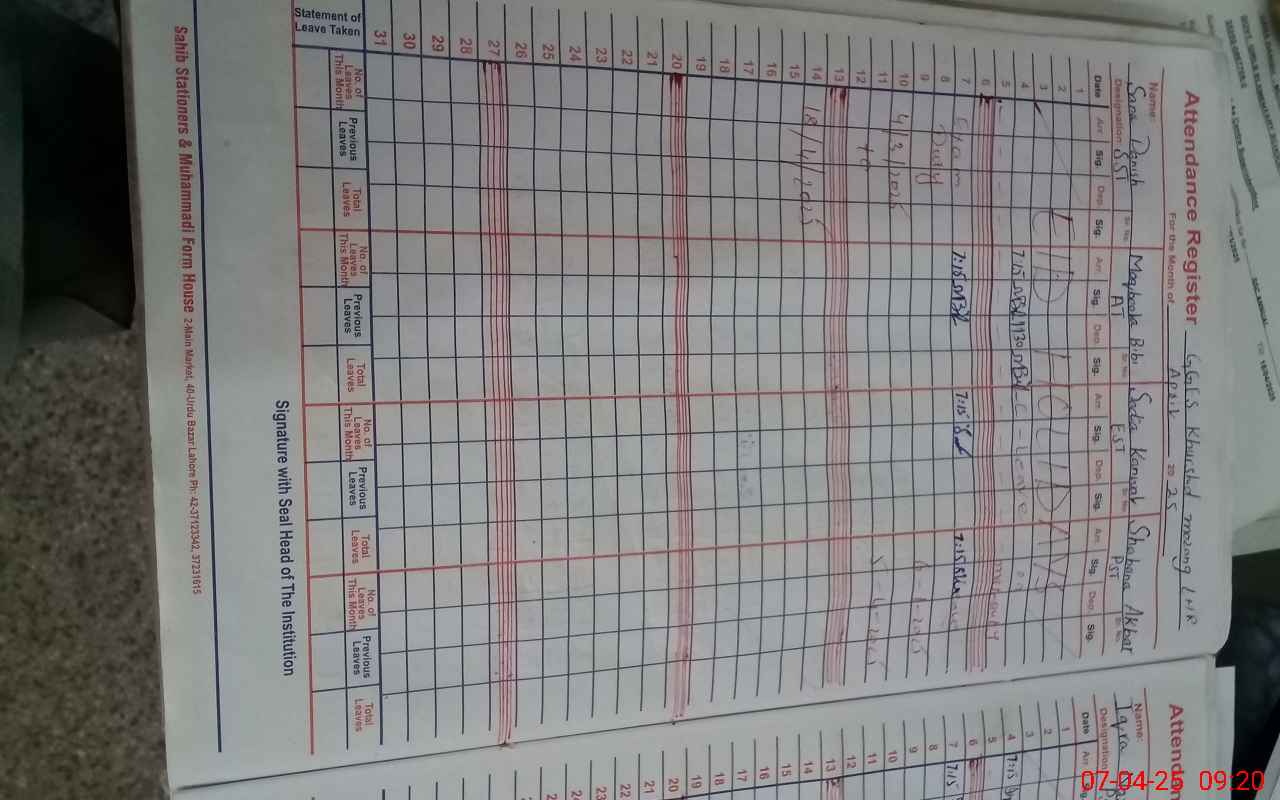 Attendance Register GGES Khurshid
For the Month of April 20 25
Name: Sana Danish Maqboola Bibi Sadia Kanwal Shabana Akbar
Designation: SST Sr. No. AT Sr. No. EST Sr. No. PST Sr. No.
Date Arr. Sig. Dep. Sig. Arr. Sig. Dep. Sig. Arr. Sig. Dep. Sig. Arr. Sig. Dep. Sig.
1
2
3
4 7:15 1130 C-Leave
5
6
7 Exam 7:15 7:15 7:15
8 Duty
9
10 4/3/2025
11 5-4-2025
12 to
13
14 18/4/2025
15
16
17
18
19
20
21
22
23
24
25
26
27
28
29
30
31
Statement of Leave Taken
No. of Leaves This Month Previous Leaves Total Leaves No. of Leaves This Month Previous Leaves Total Leaves No. of Leaves This Month Previous Leaves Total Leaves No. of Leaves This Month Previous Leaves Total Leaves
Signature with Seal Head of The Institution
Sahib Stationers & Muhammadi Form House 2-Main Market, 40-Urdu Bazar Lahore Ph: 42-37123342, 37231615
Attendan
Name: Iqra
Designation:
Date Arr. Sig.
1
2
3
4 7:15
5
6
7 7:15
8
9
10
11
12
13
14
15
16
17
18
19
20
21
22
23
24
07-04-25 09:20